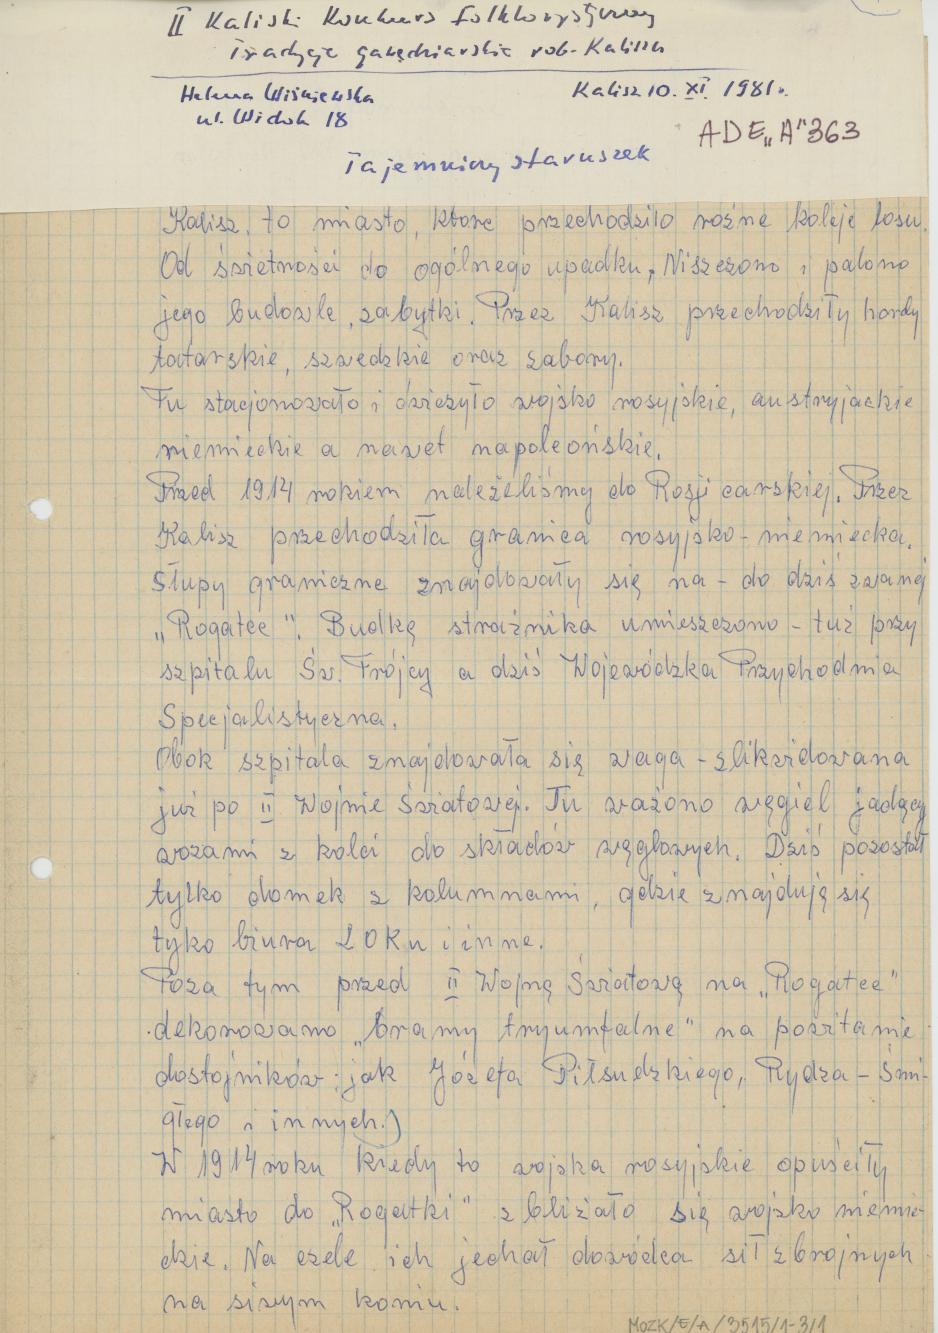 II Kaliski Konkurs Folklorystyczny
Tradycje gawędziarskie rob. Kalisza
Helena Wiśniewska
Kalisz 10. XI. 1981 r.
ul. Widok 18
ADE „A" 363
Tajemniczy staruszek
Kalisz, to miasto, które przechodziło różne koleje losu.
Od świetności do ogólnego upadku. Niszczono i palono
jego budowle, zabytki. Przez Kalisz przechodziły hordy
tatarskie, szwedzkie oraz zabory.
Tu stacjonowało i ćwiczyło wojsko rosyjskie, austryjackie
niemieckie a nawet napoleońskie.
Przed 1914 rokiem należeliśmy do Rosji carskiej. Przez
Kalisz przechodziła granica rosyjsko-niemiecka.
Słupy graniczne znajdowały się na - do dziś zwanej
„Rogatce". Budkę strażnika umieszczono - tuż przy
szpitalu Św. Trójcy a dziś Wojewódzka Przychodnia
Specjalistyczna.
Obok szpitala znajdowała się waga - zlikwidowana
już po II Wojnie Światowej. Tu ważono węgiel jadący
wozami z kolei do składów węglowych. Dziś pozostał
tylko domek z kolumnami, gdzie znajdują się
tyko biura LOKu i inne.
Poza tym przed II Wojną Światową na „Rogatce"
dekorowano „bramy tryumfalne" na powitanie
dostojników: jak Józefa Piłsudzkiego, Rydza-Śmi-
głego i innych.)
W 1914 roku kiedy to wojska rosyjskie opuściły
miasto do „Rogatki" zbliżało się wojsko niemie-
ckie. Na czele ich jechał dowódca sił zbrojnych
na siwym koniu.
MOZK/E/A/3515/1-3/1